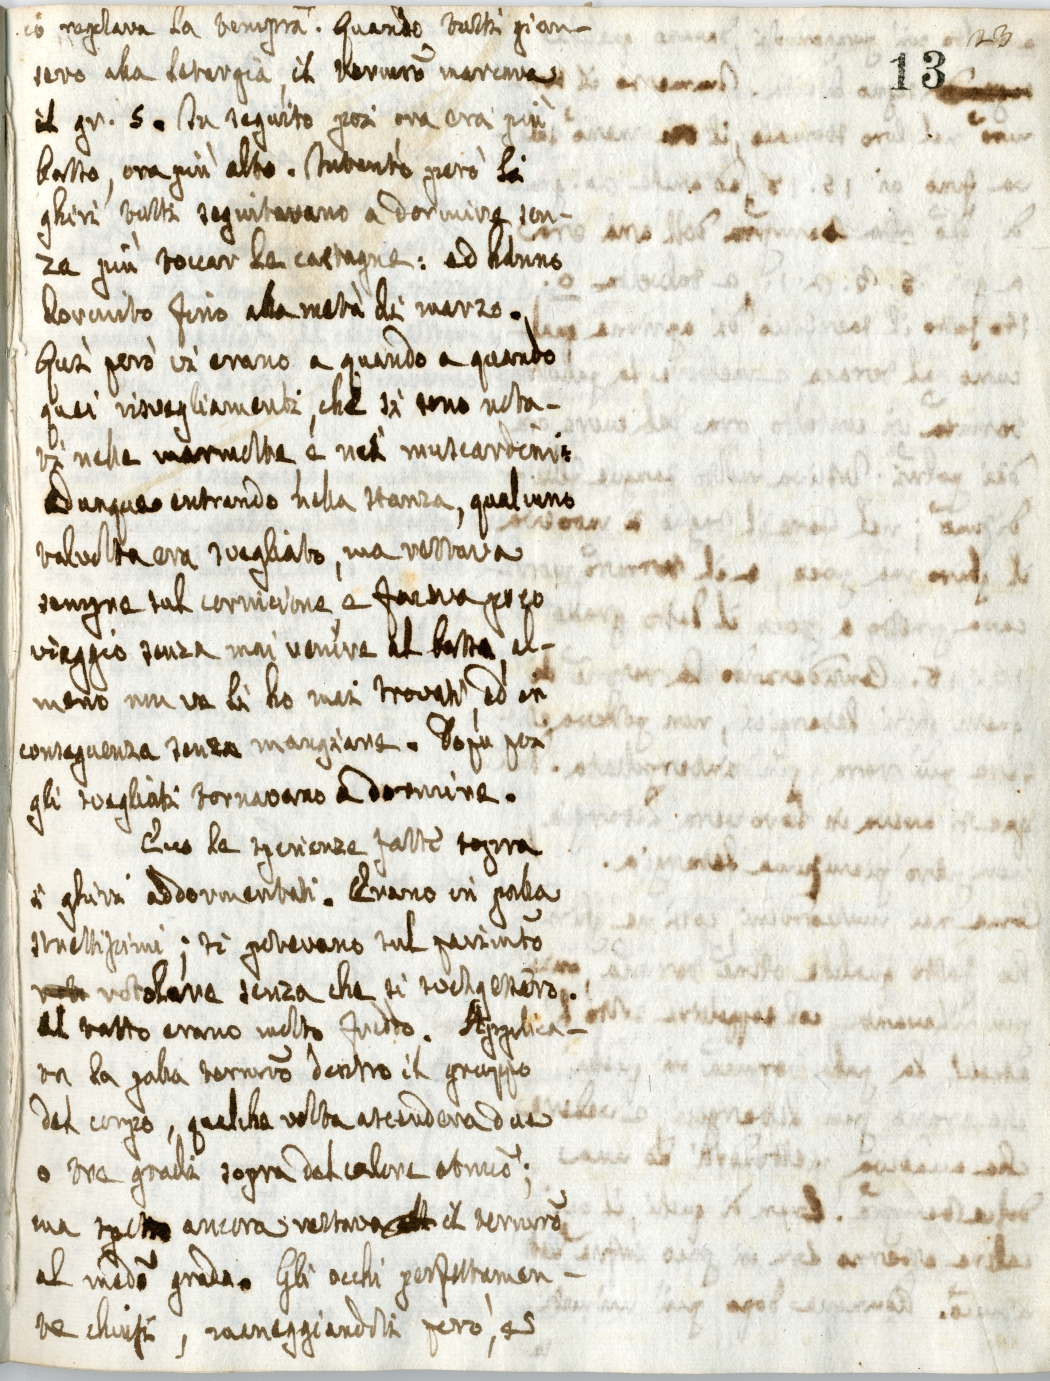 23
13
cò regolava la temprã. Quando tutti gion-
sero alla letargia, il termrõ marcava
il gr. 5. In seguito poi ora era più
basso, ora più alto. Intanto però li
ghiri tutti seguitavano a dormire sen-
za più toccar le castagne: ed hanno
dormito fino alla metà di marzo.
Qui però vi erano a quando a quando
quei risvegliamenti, che si sono nota-
ti nelle marmotte e nei muscardini:
Dunque entrando nella stanza, qualcuno
talvolta era svegliato, ma restava
sempre sul cornicione e faceva poco
viaggio senza mai venire al basso, al-
meno non ve li ho mai trovati, ed in
conseguenza senza mangiare. Dopo poi
gli svegliati tornavano a dormire.
Ecco le sperienze fatte sopra
i ghiri addormentati. Erano in palla
strettissimi; si potevano sul pavimtõ
rotolare senza che si svolgessero.
Al tatto erano molto freddo. Applica-
ta la palla termrõ dentro il gruppo
del corpo, qualche volta ascendeva due
o tre gradi sopra del calore atmicõ;
ma ancora restava il termrõ
al medõ grado. Gli occhi perfettamen-
te chiusi, maneggiandoli però, es